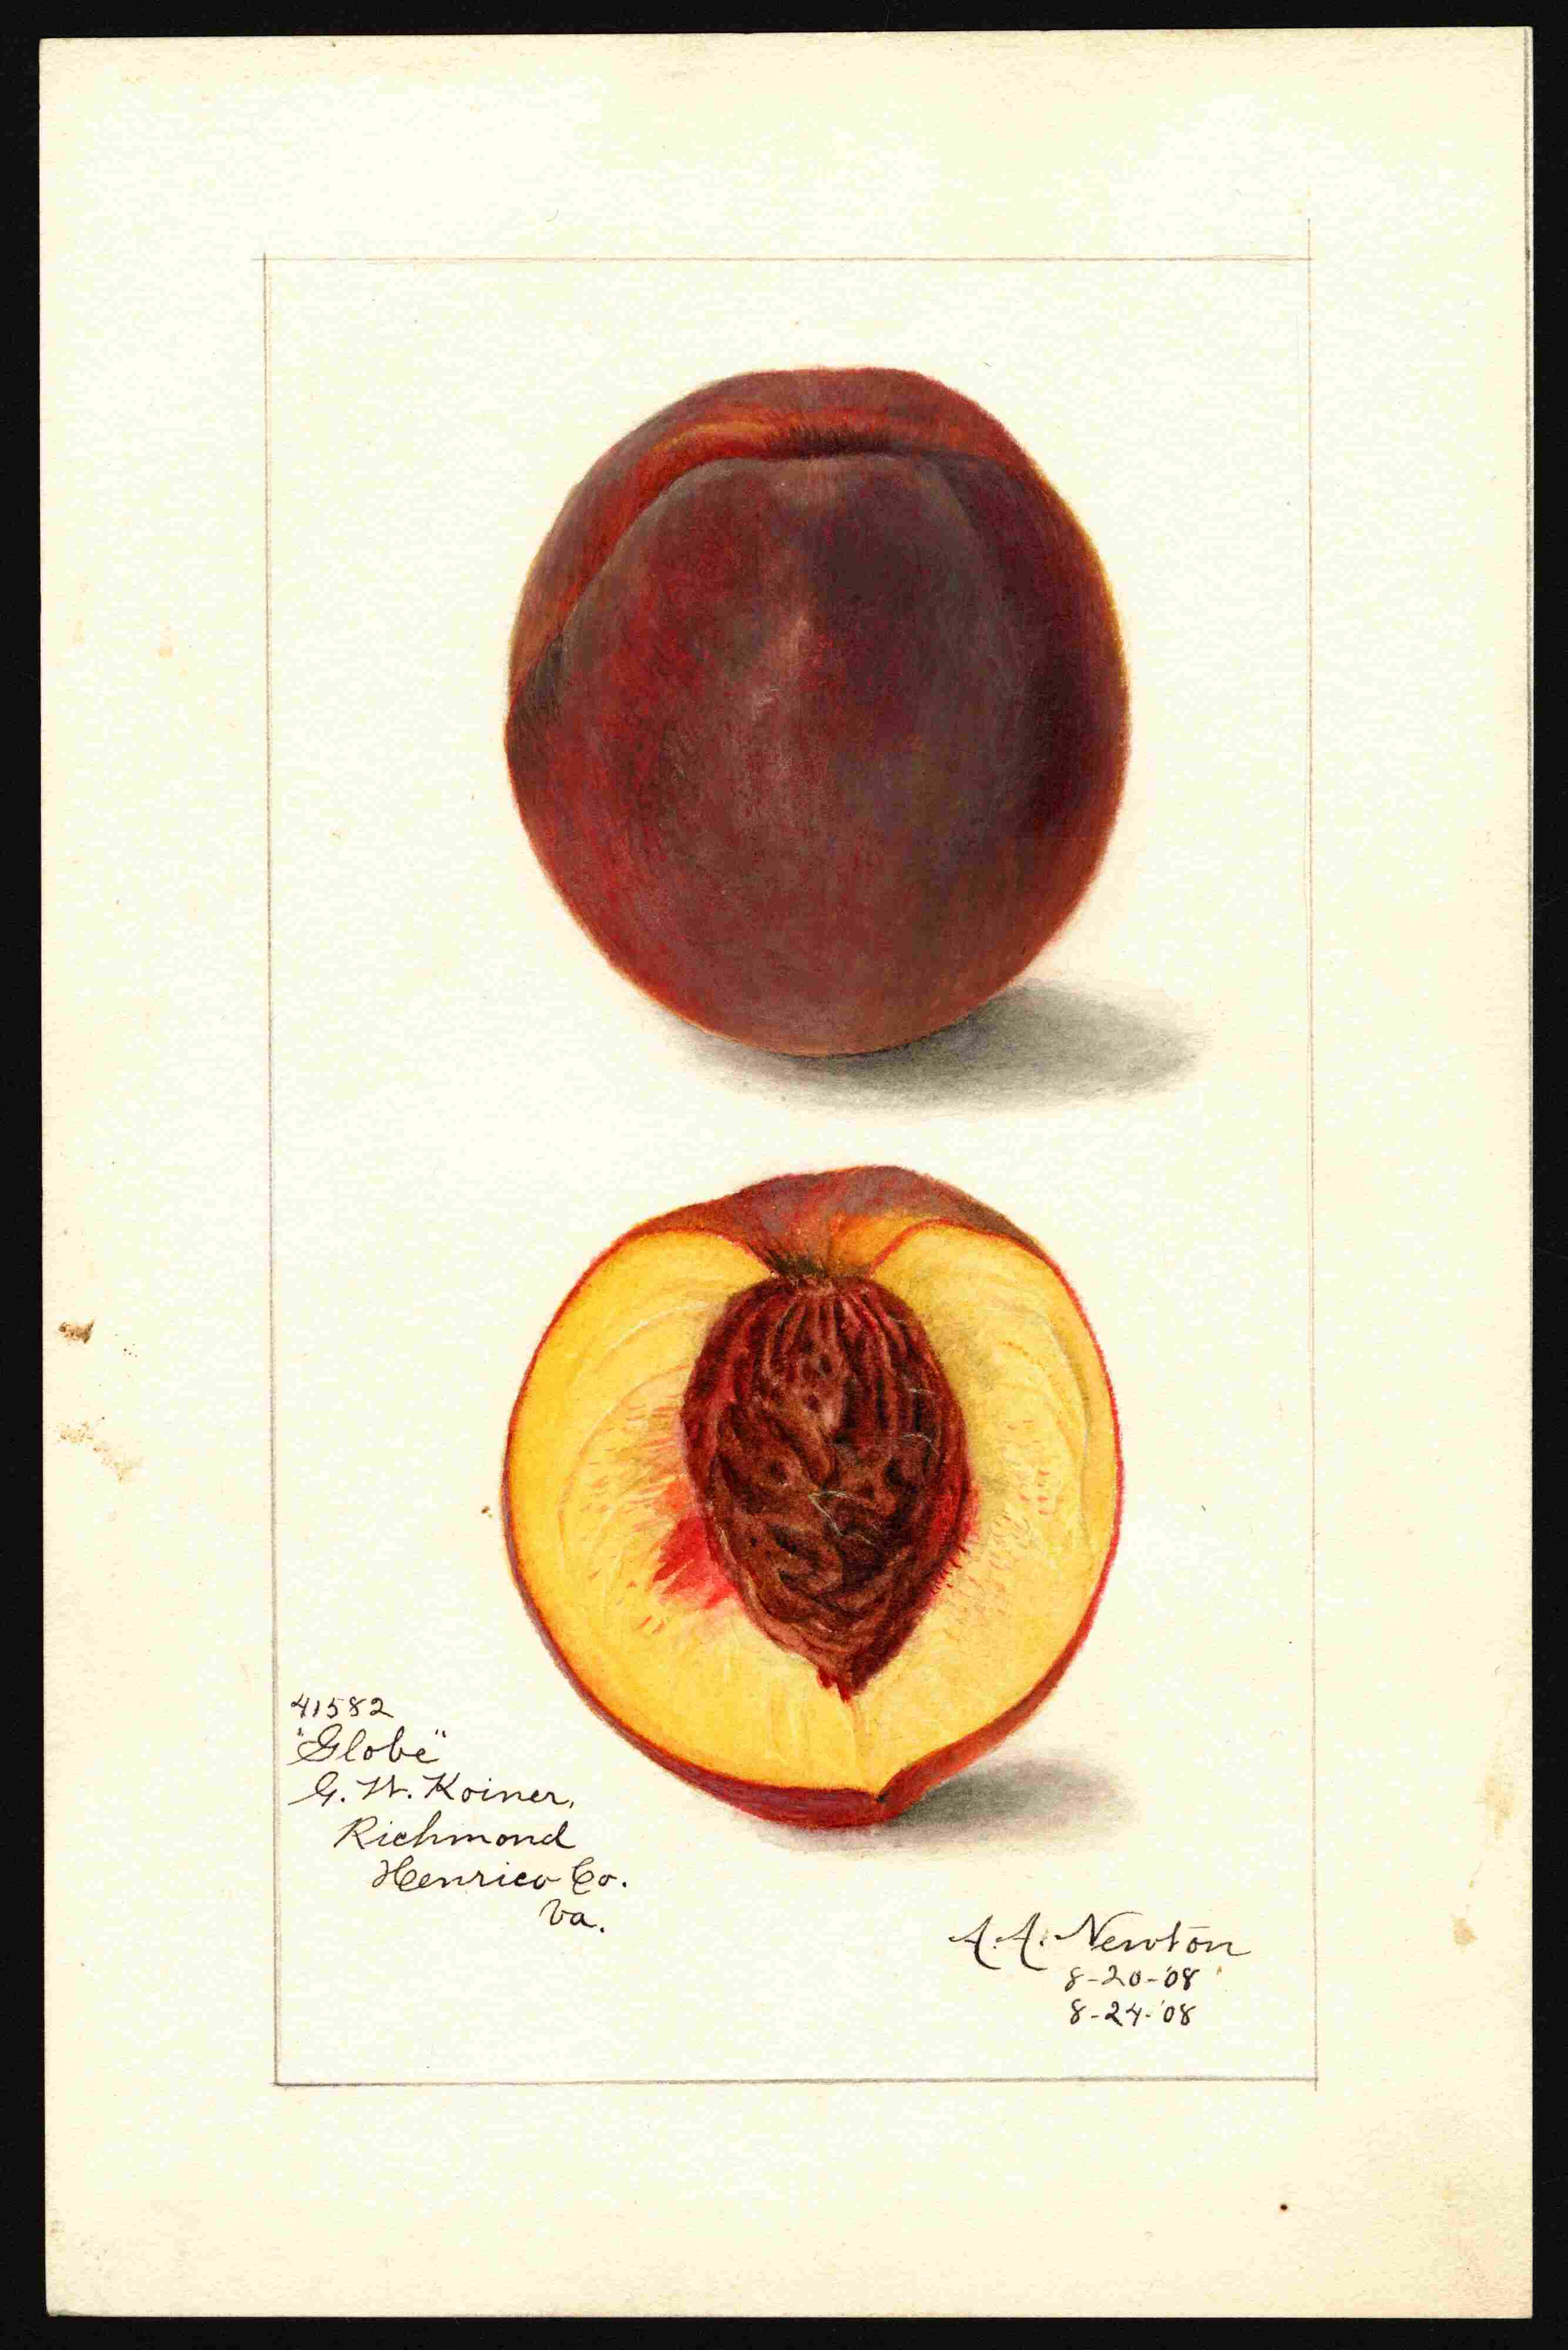 41582
"Globe"
G. W. Koiner,
Richmond
Henrico Co.
Va.
A. A. Newton
8-20-'08
8-24-'08